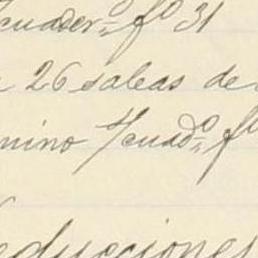 cuader.º fº 31
26 saleas de
nino 4/cuadº fº
educciones